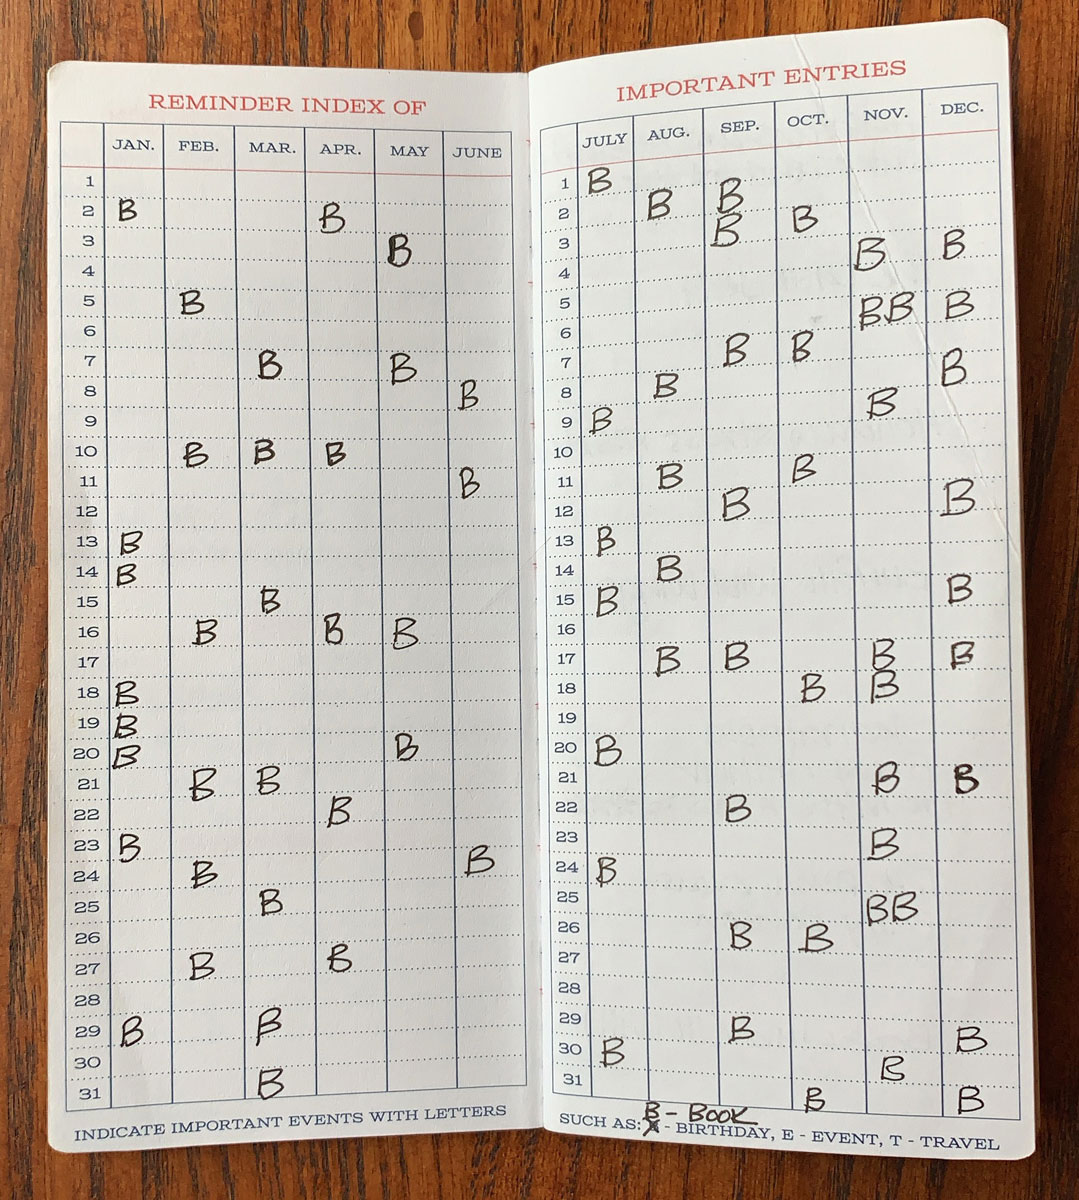 REMINDER INDEX OF
JAN. FEB. MAR. APR. MAY JUNE
1
2 B B
3 B
4
5 B
6
7 B B
8 B
9
10 B B B
11 B
12
13 B
14 B
15 B
16 B B B
17
18 B
19 B
20 B B
21 B B
22 B
23 B
24 B B
25 B
26
27 B B
28
29 B B
30
31 B
INDICATE IMPORTANT EVENTS WITH LETTERS
IMPORTANT ENTRIES
JULY AUG. SEP. OCT. NOV. DEC.
1 B
2 B B
3 B B
4 B B
5
6 BB B
7 B B
8 B B
9 B B
10
11 B B
12 B B
13 B
14 B
15 B B
16
17 B B B B
18 B B
19
20 B
21 B B
22 B
23 B
24 B
25 BB
26 B B
27
28
29 B B
30 B B
31 B B
B - BOOK
SUCH AS: - BIRTHDAY, E - EVENT, T - TRAVEL